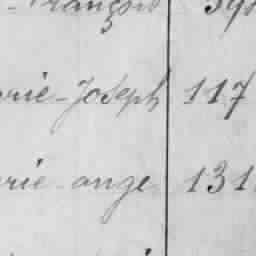 François 391
rie-Joseph 117
rie ange 131